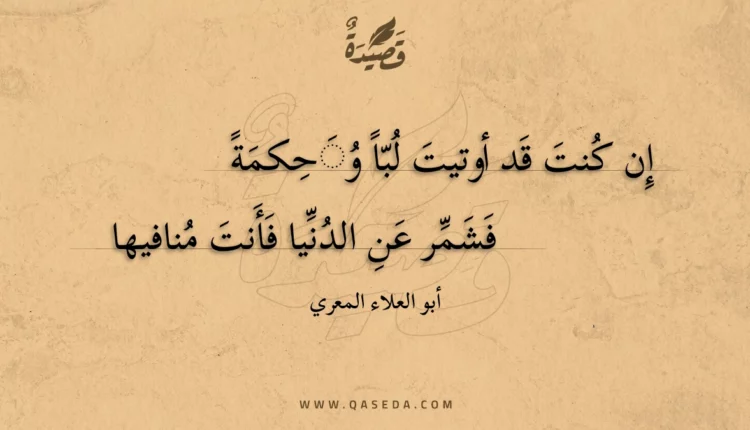 قَصِيْدَةٌ
إِن كُنتَ قَد أوتيتَ لُبّاً وُ◌َحِكمَةً
فَشَمِّر عَنِ الدُنِّيا فَأَنتَ مُنافيها
أبو العلاء المعري
WWW.QASEDA.COM